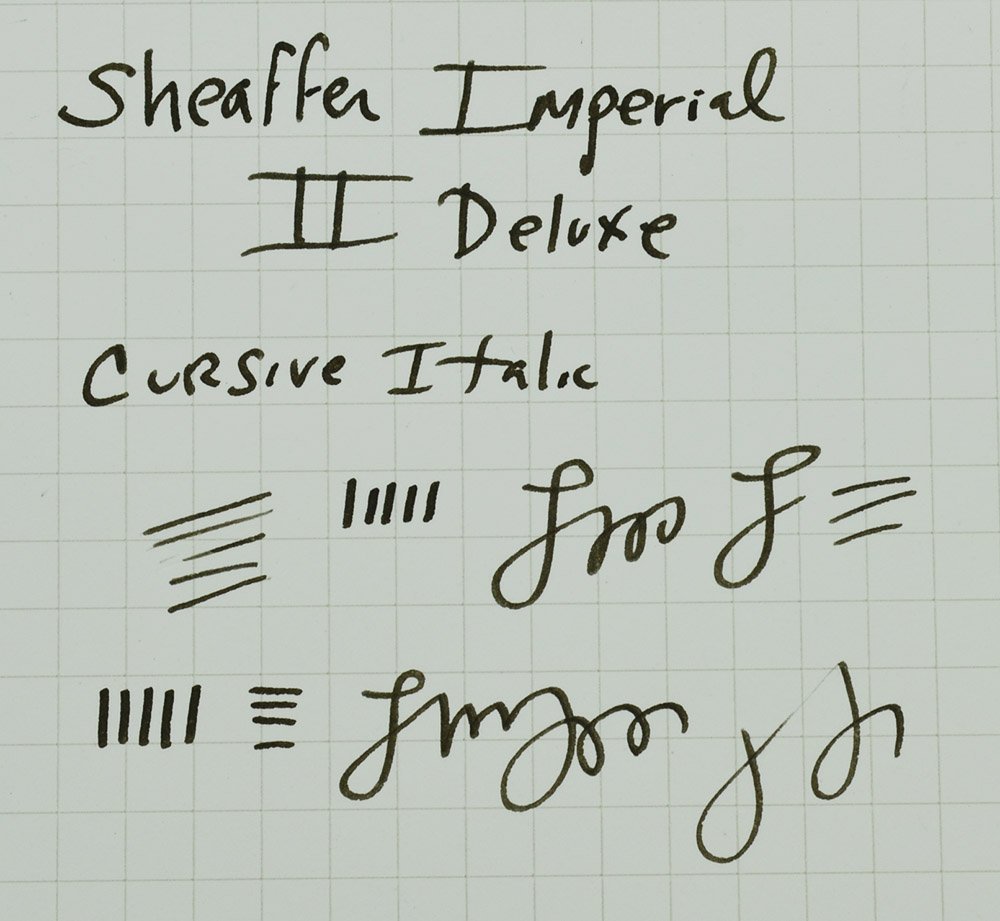 Sheaffer Imperial
II Deluxe
Cursive Italic